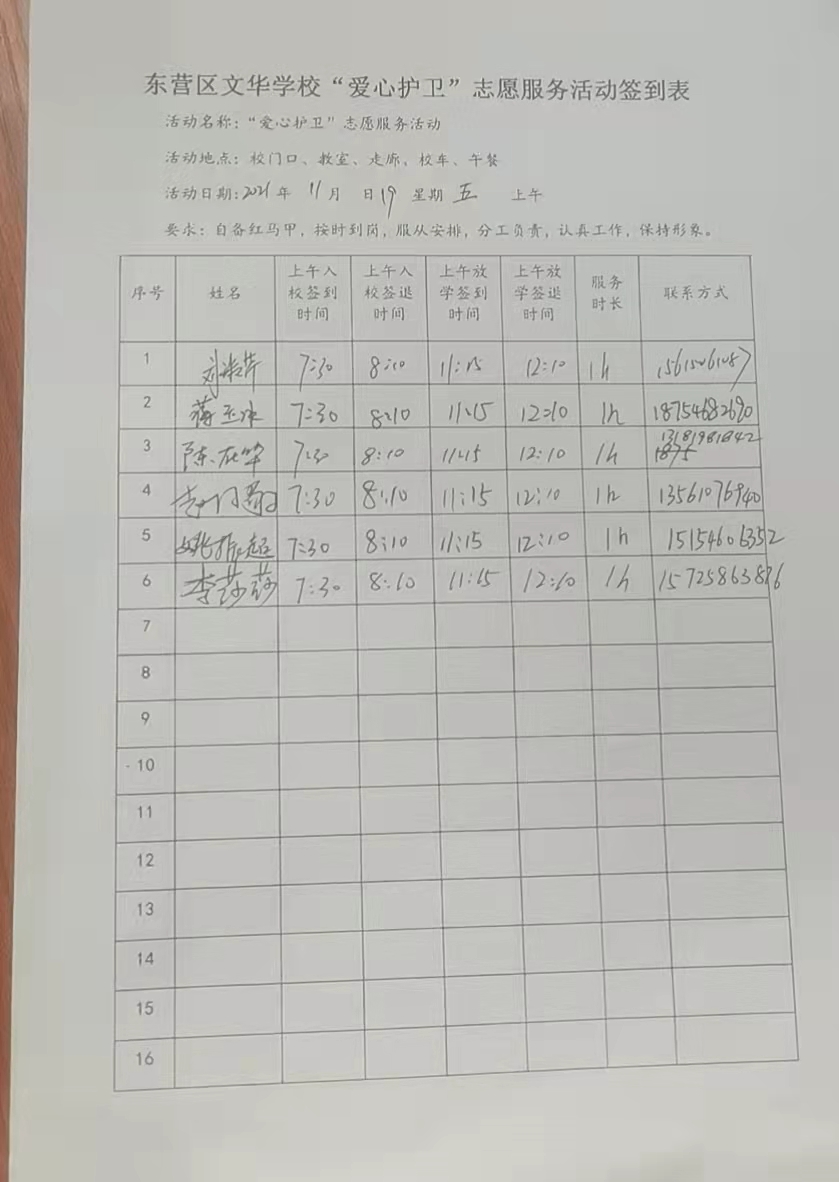 东营区文华学校“爱心护卫”志愿服务活动签到表
活动名称：“爱心护卫”志愿服务活动
活动地点：校门口、教室、走廊、校车、午餐
活动日期：2021年 11月 日19 星期 五 上午
要求：自备红马甲，按时到岗，服从安排，分工负责，认真工作，保持形象。
序号 姓名 上午入校签到时间 上午入校签退时间 上午放学签到时间 上午放学签退时间 服务时长 联系方式
1 7:30 8:10 11:15 12:10 1h
2 蒋玉冰 7:30 8:10 11:15 12:10 1h 18754682690
3 陈在华 7:30 8:10 11:15 12:10 1h 13181981842
4 7:30 8:10 11:15 12:10 1h 13561076940
5 姚振超 7:30 8:10 11:15 12:10 1h 15154606352
6 李莎莎 7:30 8:10 11:15 12:10 1h 15725863886
7
8
9
10
11
12
13
14
15
16